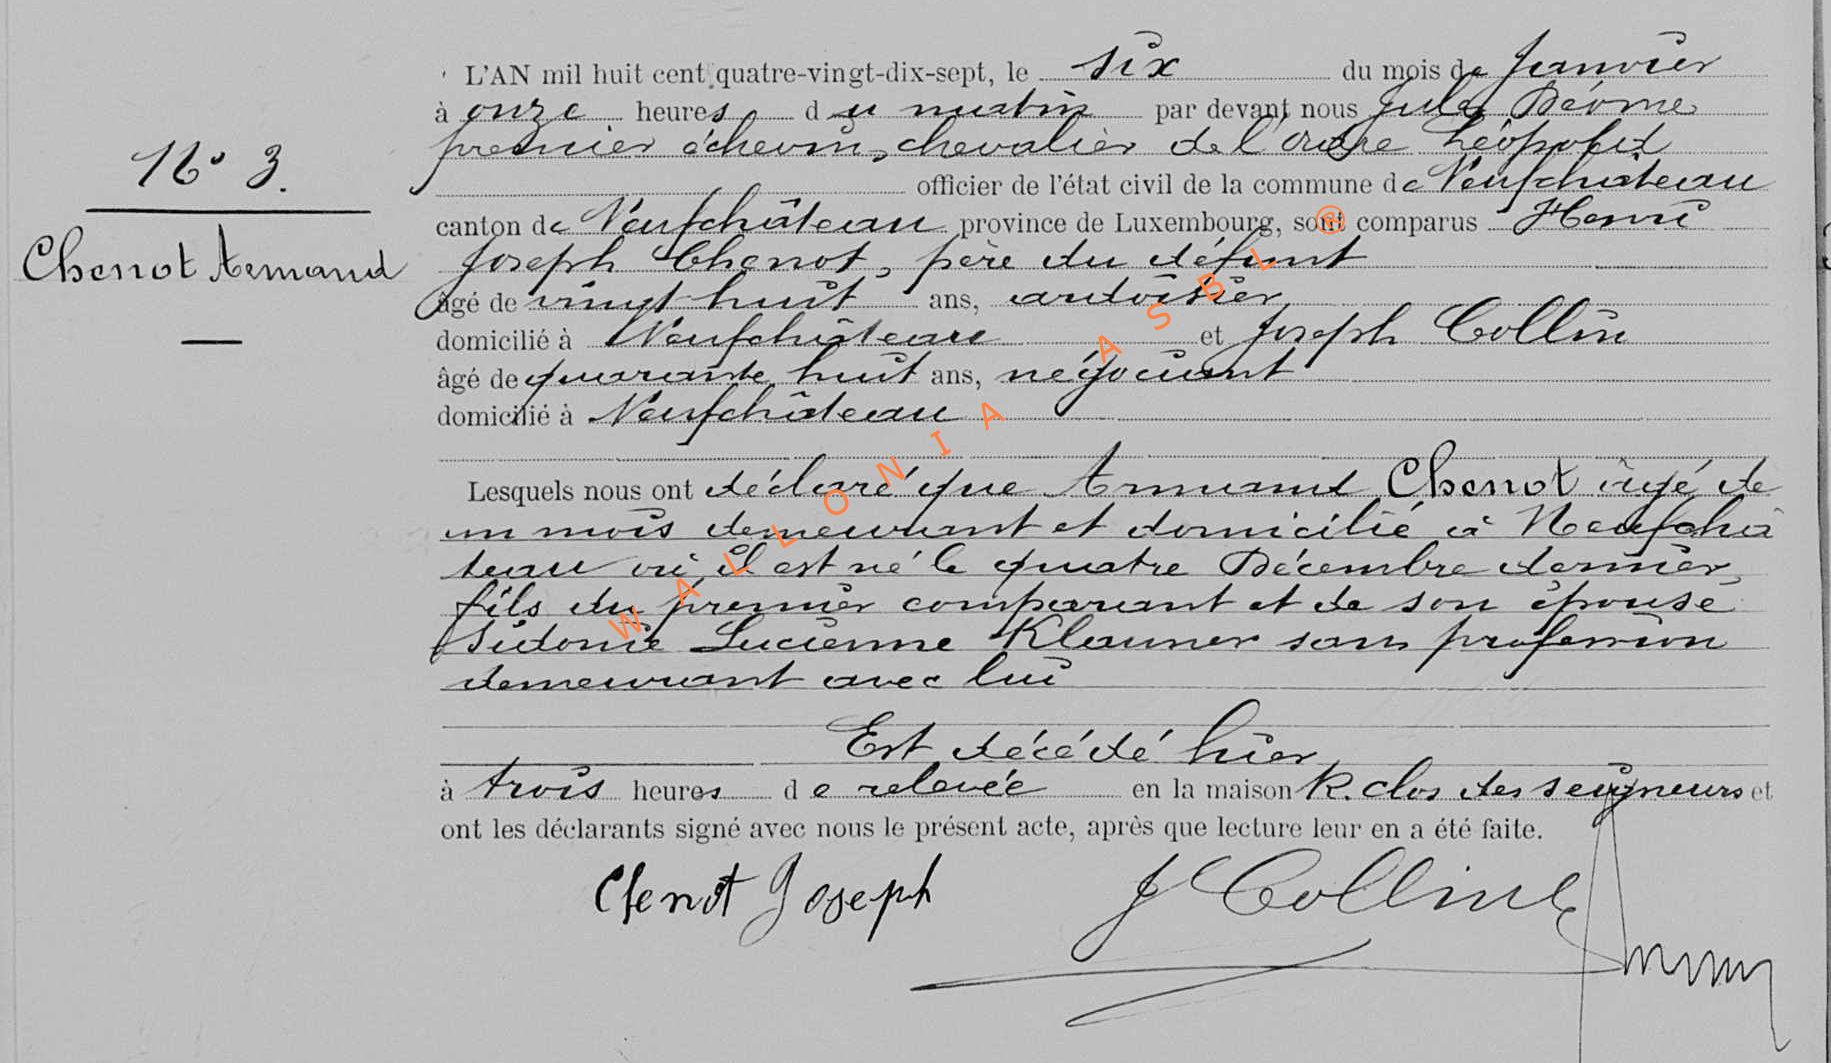 L'AN mil huit cent quatre-vingt-dix-sept, le six du mois de Janvier
à onze heures du matin par devant nous Jules
premier échevin, chevalier de l'ordre Léopold
N° 3.
officier de l'état civil de la commune de Neufchâteau
canton de Neufchâteau province de Luxembourg, sont comparus Henri
Chenot Armand
Joseph Chenot, père du défunt
âgé de vingt-huit ans, ardoisier
domicilié à Neufchâteau et Joseph Collin
âgé de quarante huit ans, négociant
domicilié à Neufchâteau
Lesquels nous ont déclaré que Armand Chenot âgé de
un mois demeurant et domicilié à Neufchâ
teau où il est né le quatre Décembre dernier,
fils du premier comparant et de son épouse
Sidonie Lucienne Klauner sans profession
demeurant avec lui
Est décédé hier
à trois heures de relevée en la maison R. clos des seigneurs et
ont les déclarants signé avec nous le présent acte, après que lecture leur en a été faite.
Chenot Joseph J Collin
WALLONIA ASBL ®